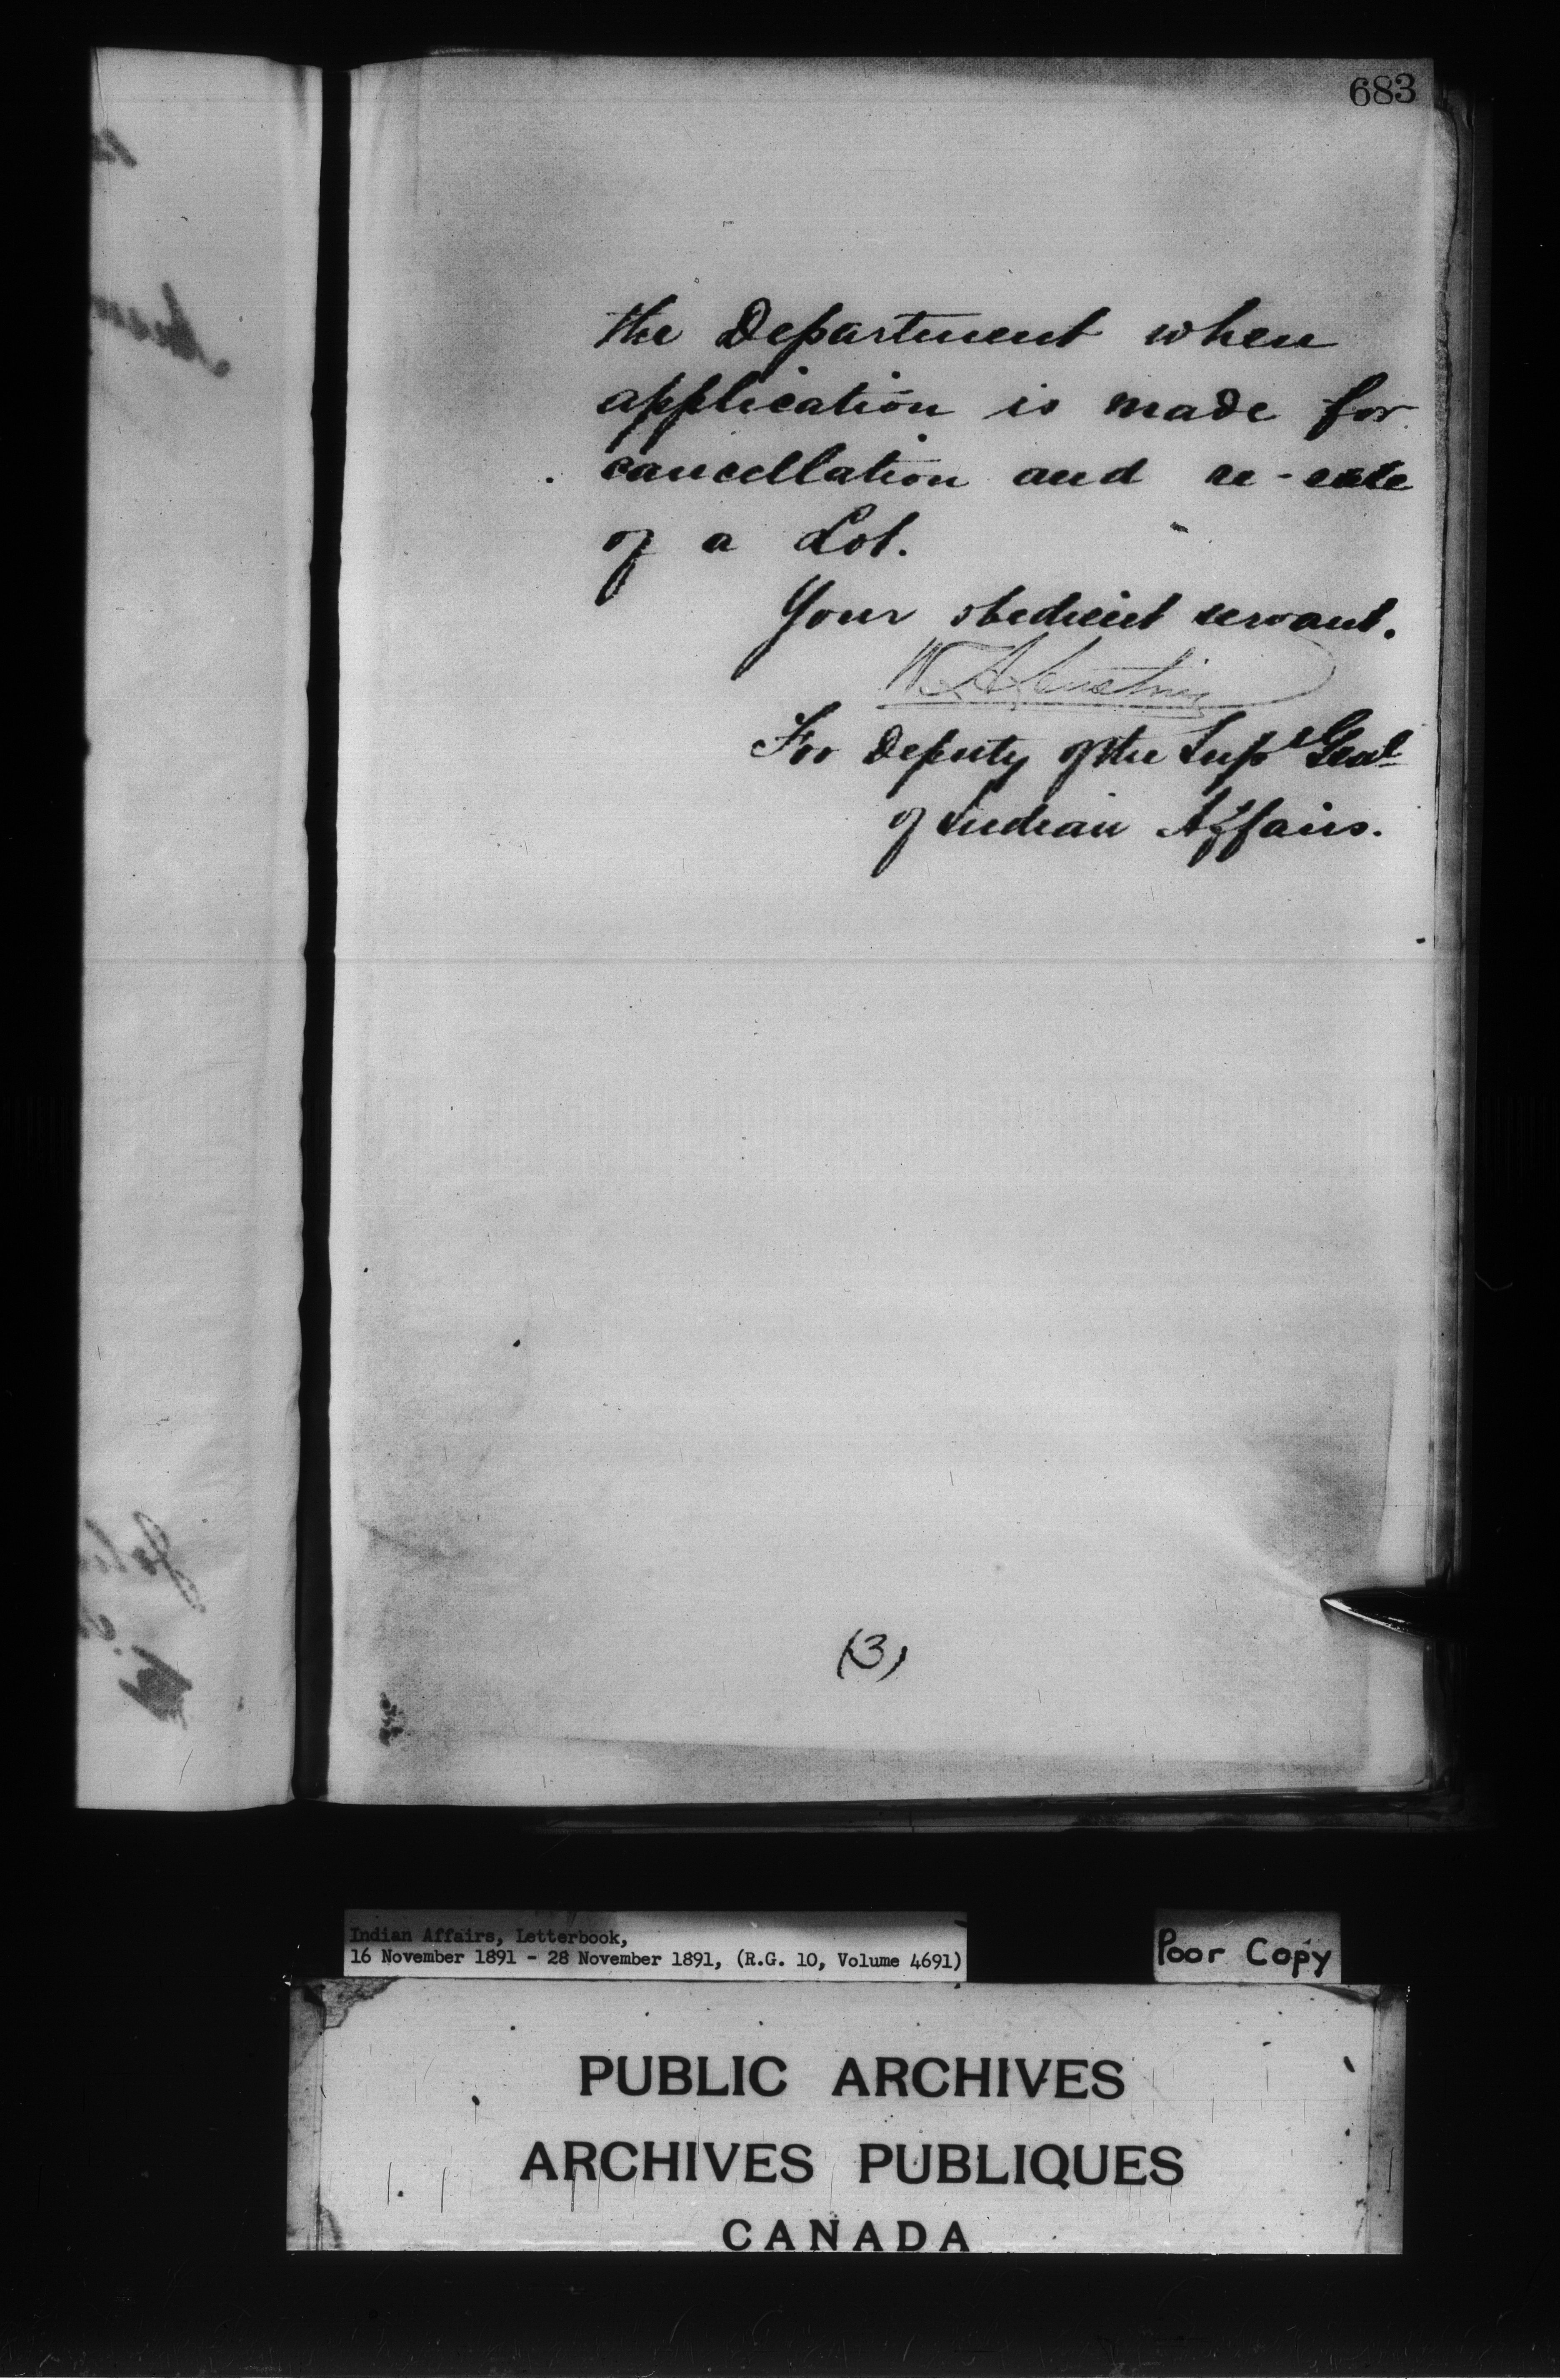 683
the Department when
application is made for
cancellation and re-sale
of a Lot.
Your obedient servant.
For Deputy of the Supt Genl
of Indian Affairs.
(3)
Indian Affairs, Letterbook,
16 November 1891 - 28 November 1891, (R.G. 10, Volume 4691)
Poor Copy
PUBLIC ARCHIVES
ARCHIVES PUBLIQUES
CANADA